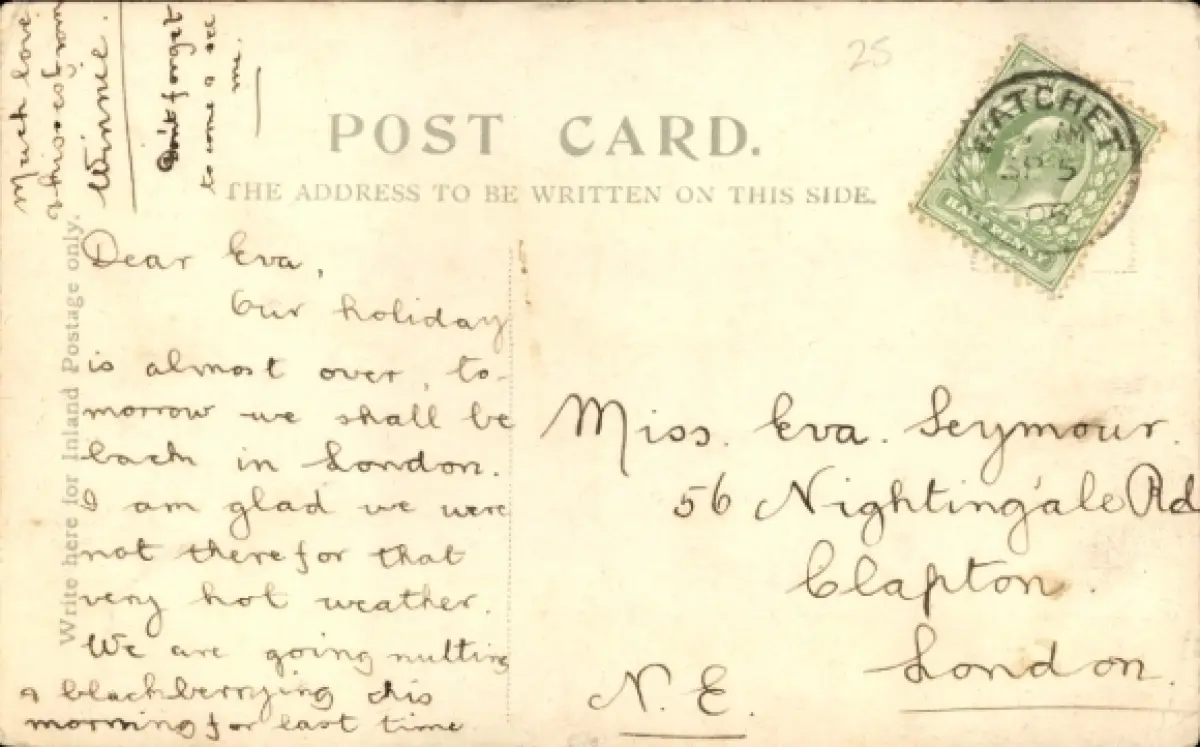 25
WATCHET
SP 5
06
HALFPENNY
POST CARD.
THE ADDRESS TO BE WRITTEN ON THIS SIDE.
Write here for Inland Postage only.
Dear Eva,
Our holiday
is almost over, to-
morrow we shall be
back in London.
I am glad we were
not there for that
very hot weather.
We are going nutting
& blackberrying this
morning for last time
Much love
& kisses from
Winnie.
Don't forget
to come & see
me.
Miss. Eva. Seymour.
56 Nightingale Rd
Clapton.
London.
N. E.